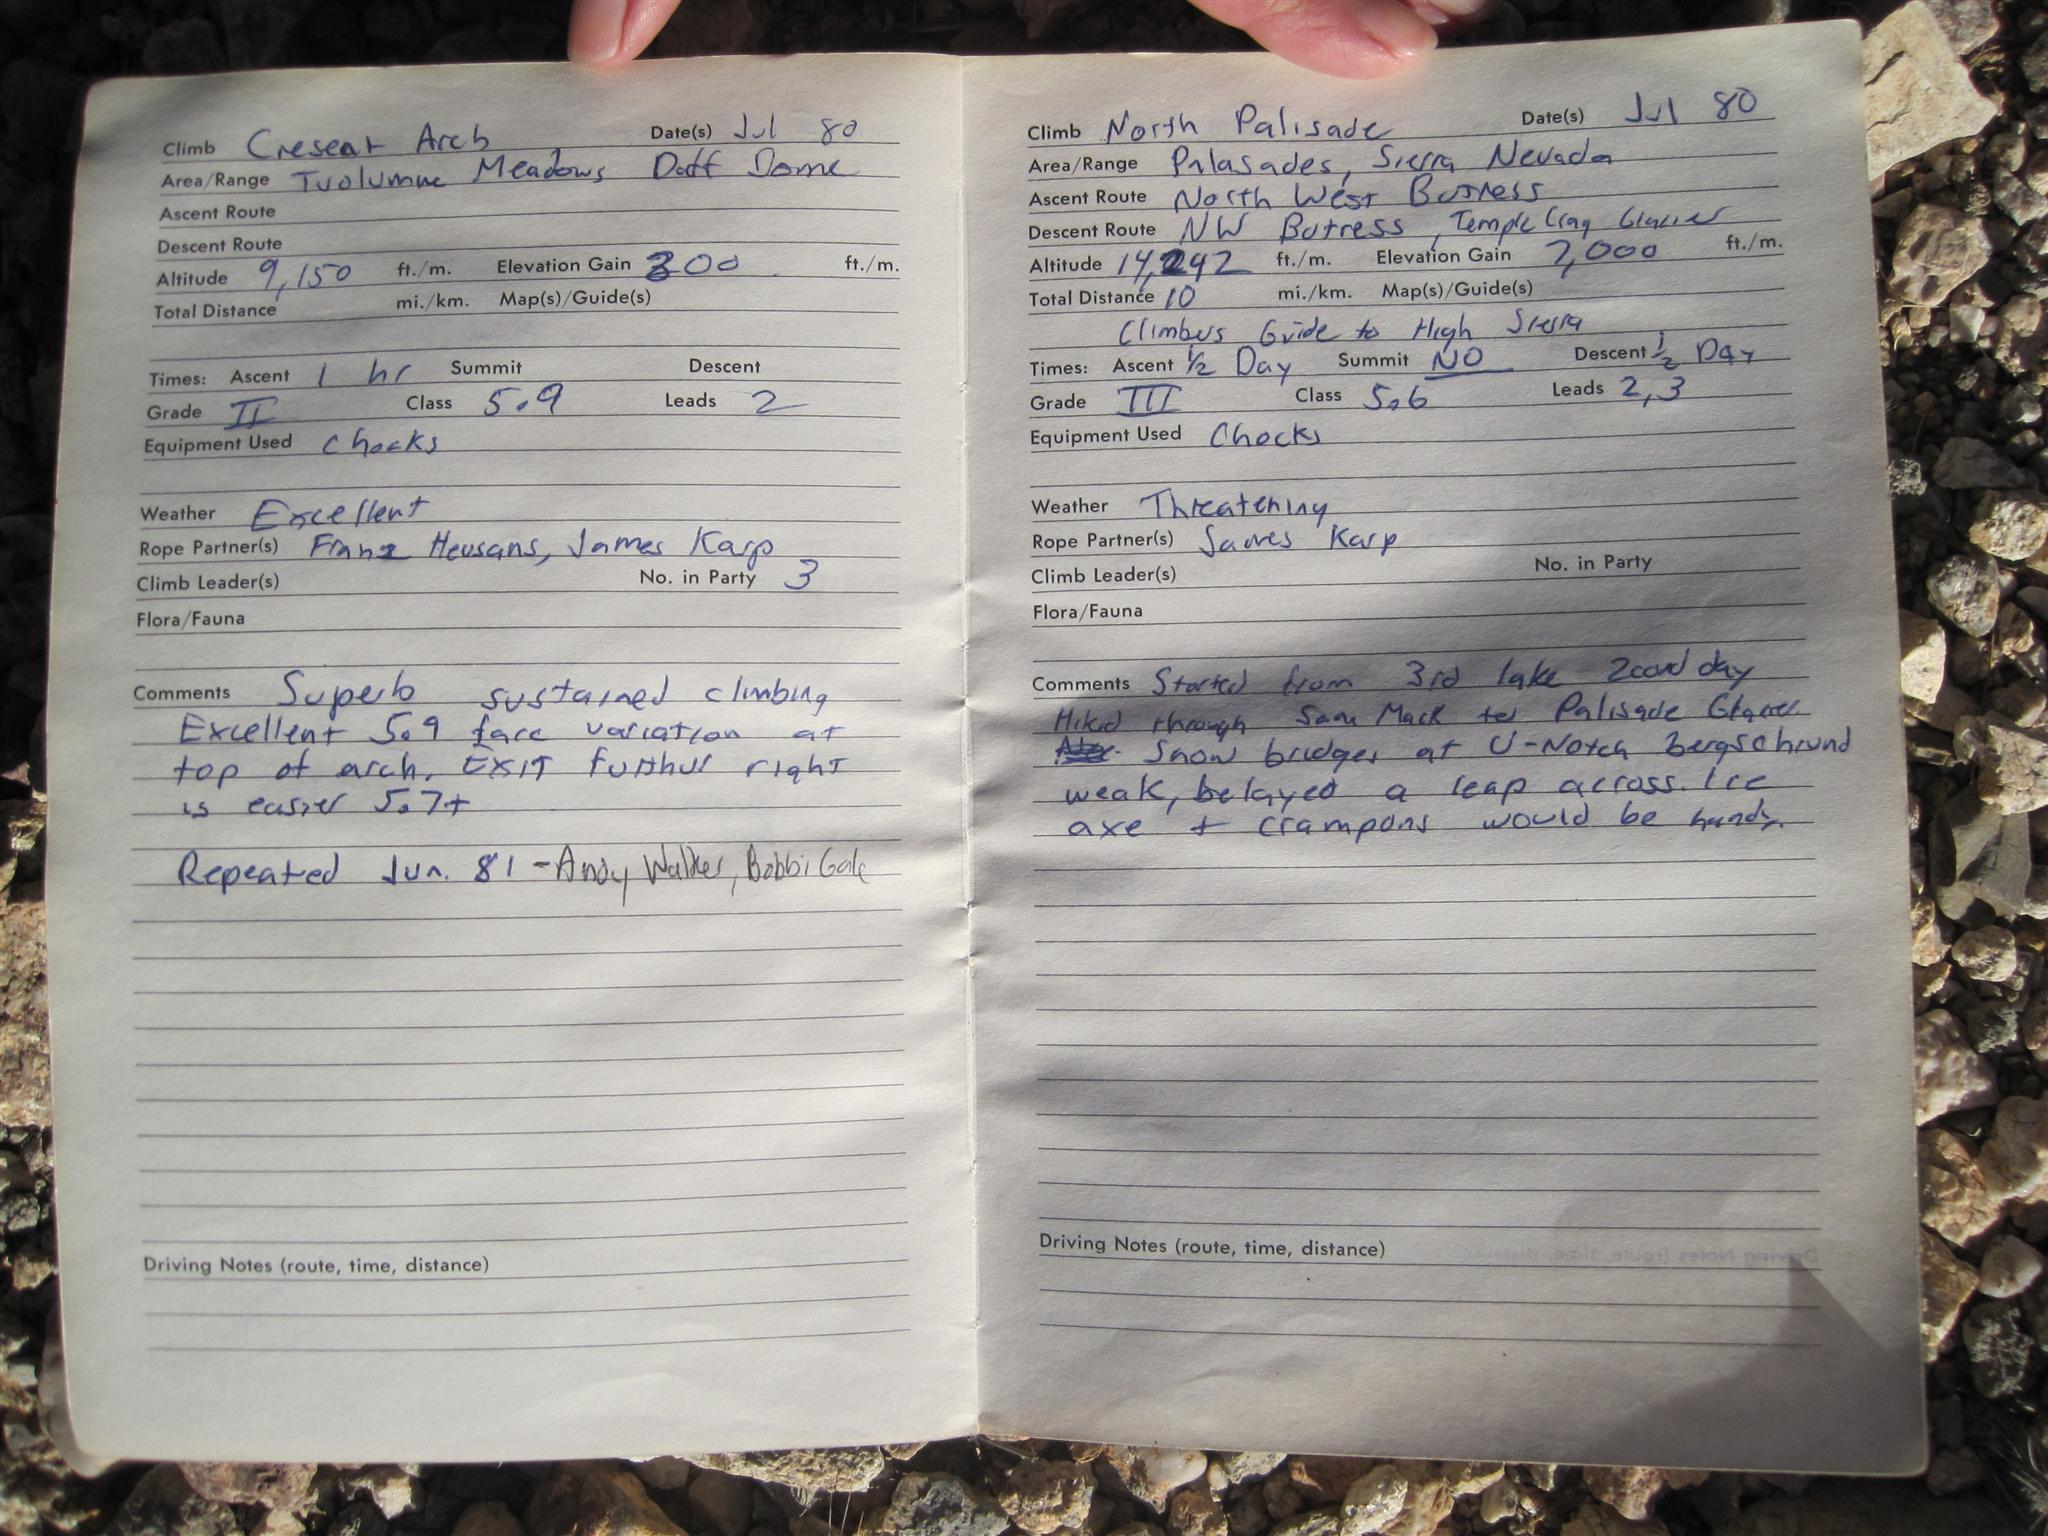 Climb Cresent Arch Date(s) Jul 80
Area/Range Tuolumne Meadows Daff Dome
Ascent Route
Descent Route
Altitude 9,150 ft./m. Elevation Gain 300 ft./m.
Total Distance mi./km. Map(s)/Guide(s)
Times: Ascent 1 hr Summit Descent
Grade II Class 5.9 Leads 2
Equipment Used Chocks
Weather Excellent
Rope Partner(s) Franz Heusans, James Karp
Climb Leader(s) No. in Party 3
Flora/Fauna
Comments Superb sustained climbing
Excellent 5.9 face variation at
top of arch. EXIT further right
is easier 5.7+
Repeated Jun. 81 - Andy Walker, Bobbi Gale
Driving Notes (route, time, distance)
Climb North Palisade Date(s) Jul 80
Area/Range Palasades, Sierra Nevada
Ascent Route North West Butress
Descent Route NW Butress, Temple Crag Glacier
Altitude 14,242 ft./m. Elevation Gain 7,000 ft./m.
Total Distance 10 mi./km. Map(s)/Guide(s)
Climbers Guide to High Sierra
Times: Ascent 1/2 Day Summit NO Descent 1/2 Day
Grade III Class 5.6 Leads 2,3
Equipment Used Chocks
Weather Threatening
Rope Partner(s) James Karp
Climb Leader(s) No. in Party
Flora/Fauna
Comments Started from 3rd lake 2cond day
Hiked through Sam Mack to Palisade Glacier.
Snow bridges at U-Notch bergschrund
weak, belayed a leap across. Ice
axe + crampons would be handy.
Driving Notes (route, time, distance)